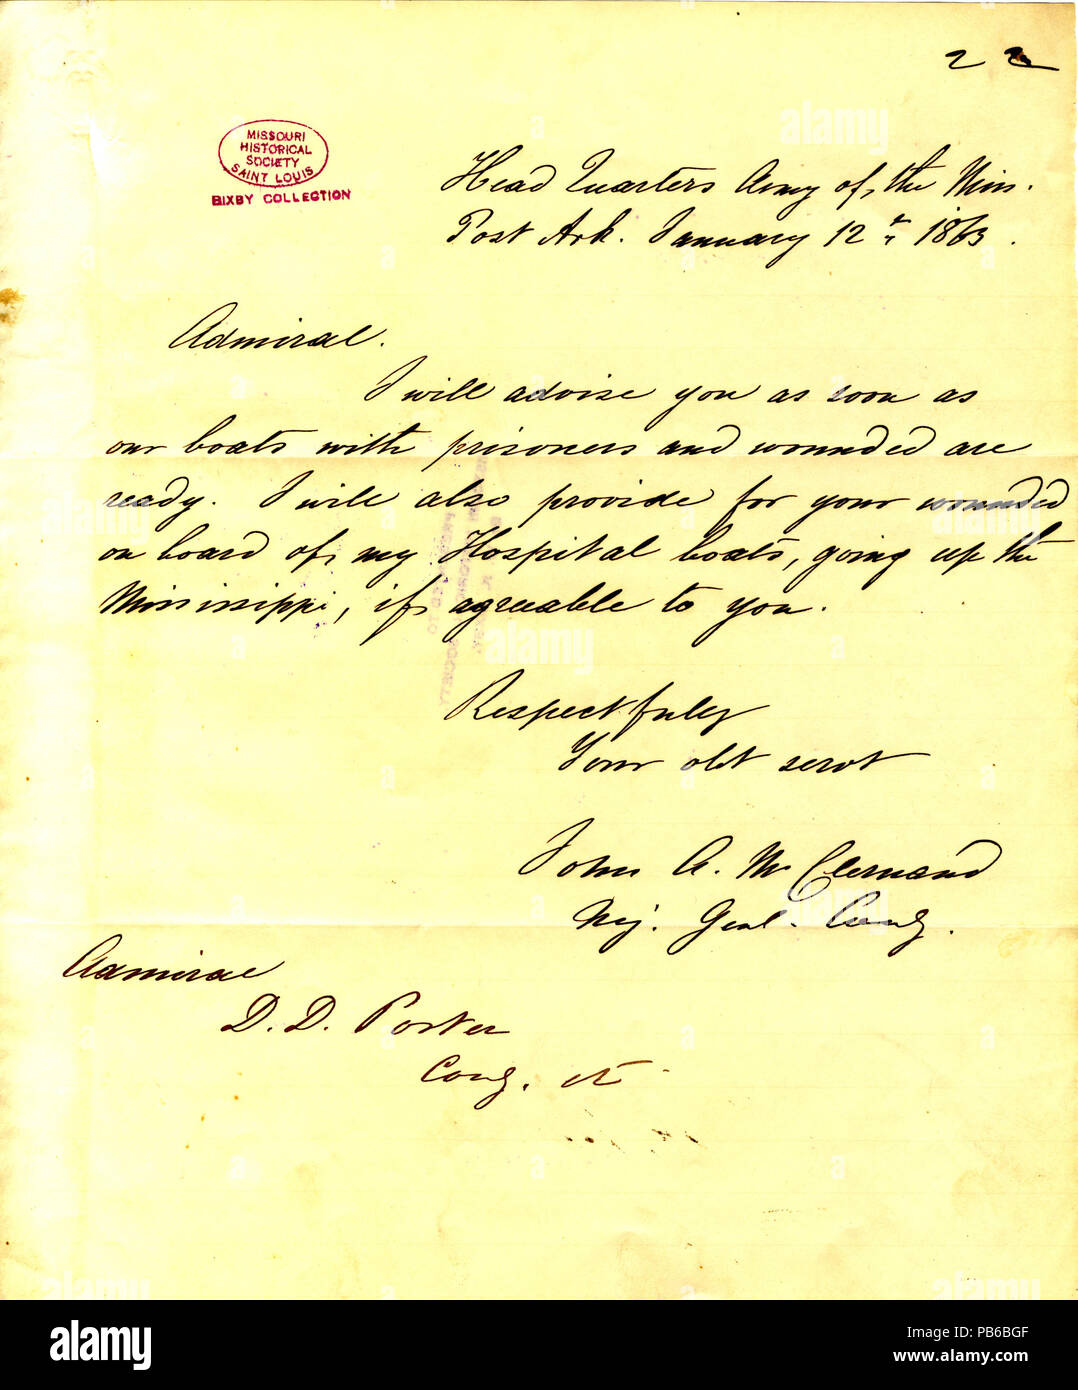 2 2
MISSOURI
HISTORICAL
SOCIETY
SAINT LOUIS
BIXBY COLLECTION
Head Quarters Army of the Miss.
Post Ark. January 12" 1863.
Admiral.
I will advise you as soon as
our boats with prisoners and wounded are
ready. I will also provide for your wounded
on board of my Hospital boats, going up the
Mississippi, if agreeable to you.
Respectfully
Your obt servt
John A. McClernand
Maj. Genl. Comg.
Admiral
D. D. Porter
Comg.
alamy
Image ID: PB6BGF
www.alamy.com